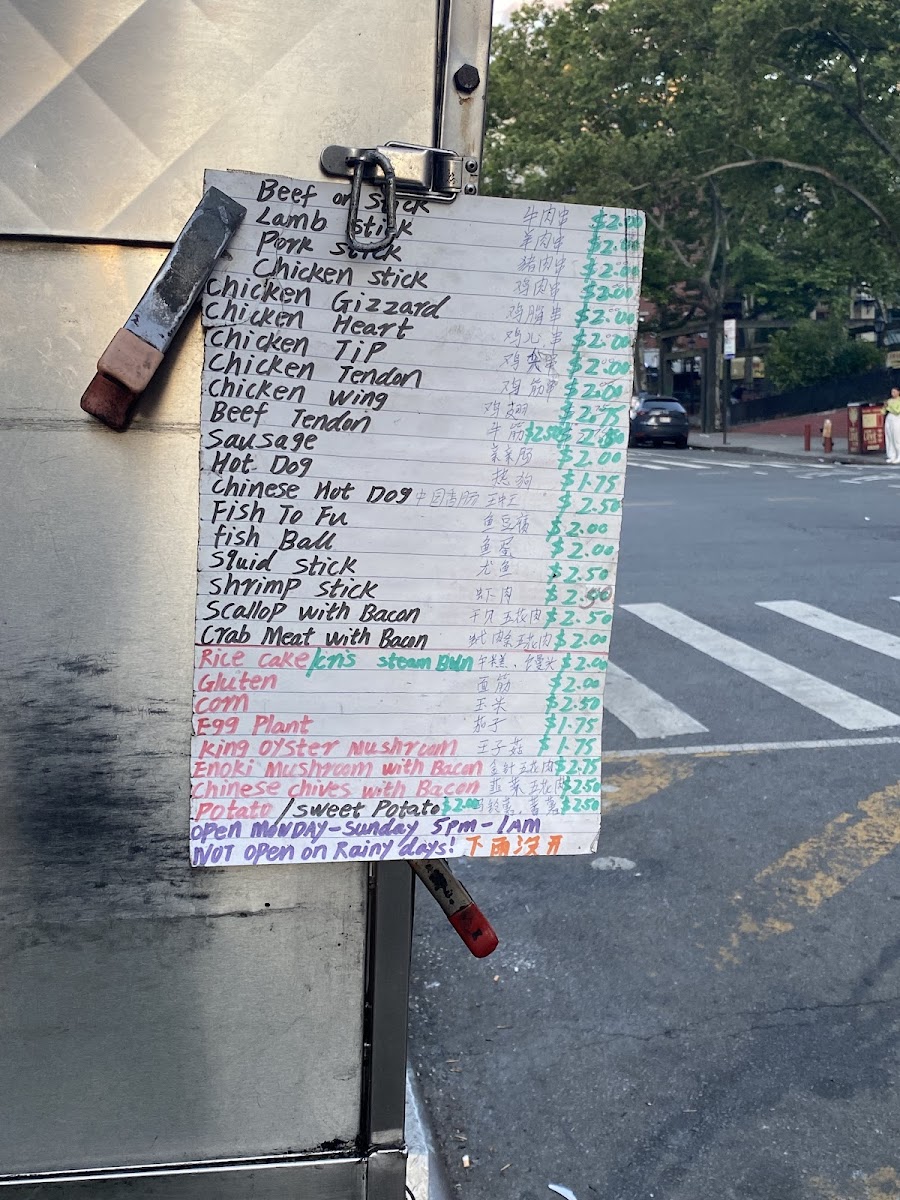 Beef on stick 牛肉串 $2.00
Lamb stick 羊肉串 $2.00
Pork stick 猪肉串 $2.00
Chicken stick 鸡肉串 $2.00
Chicken Gizzard 鸡胗串 $2.00
Chicken Heart 鸡心串 $2.00
Chicken Tip 鸡 $2.00
Chicken Tendon 鸡筋串 $2.00
Chicken Wing 鸡翅 $2.75
Beef Tendon 牛筋 $2.50
Sausage $2.00
Hot Dog 热狗 $1.75
Chinese Hot Dog 中国香肠 $2.50
Fish To Fu 鱼豆腐 $2.00
fish Ball 鱼蛋 $2.00
Squid stick 尤鱼 $2.50
shrimp stick 虾肉 $2.50
Scallop with Bacon 干贝五花肉 $2.50
Crab Meat with Bacon 五花肉 $2.00
Rice cake/ steam Bun 年糕、馒头 $2.00
Gluten 面筋 $2.00
corn 玉米 $2.50
Egg Plant 茄子 $1.75
King Oyster Mushroom 王子菇 $1.75
Enoki Mushroom with Bacon 金针五花肉 $2.75
Chinese chives with Bacon 韭菜五花肉 $2.50
Potato/sweet Potato $2.00 $2.50
Open MONDAY-Sunday 5pm-1AM
NOT open on Rainy days! 下雨没开